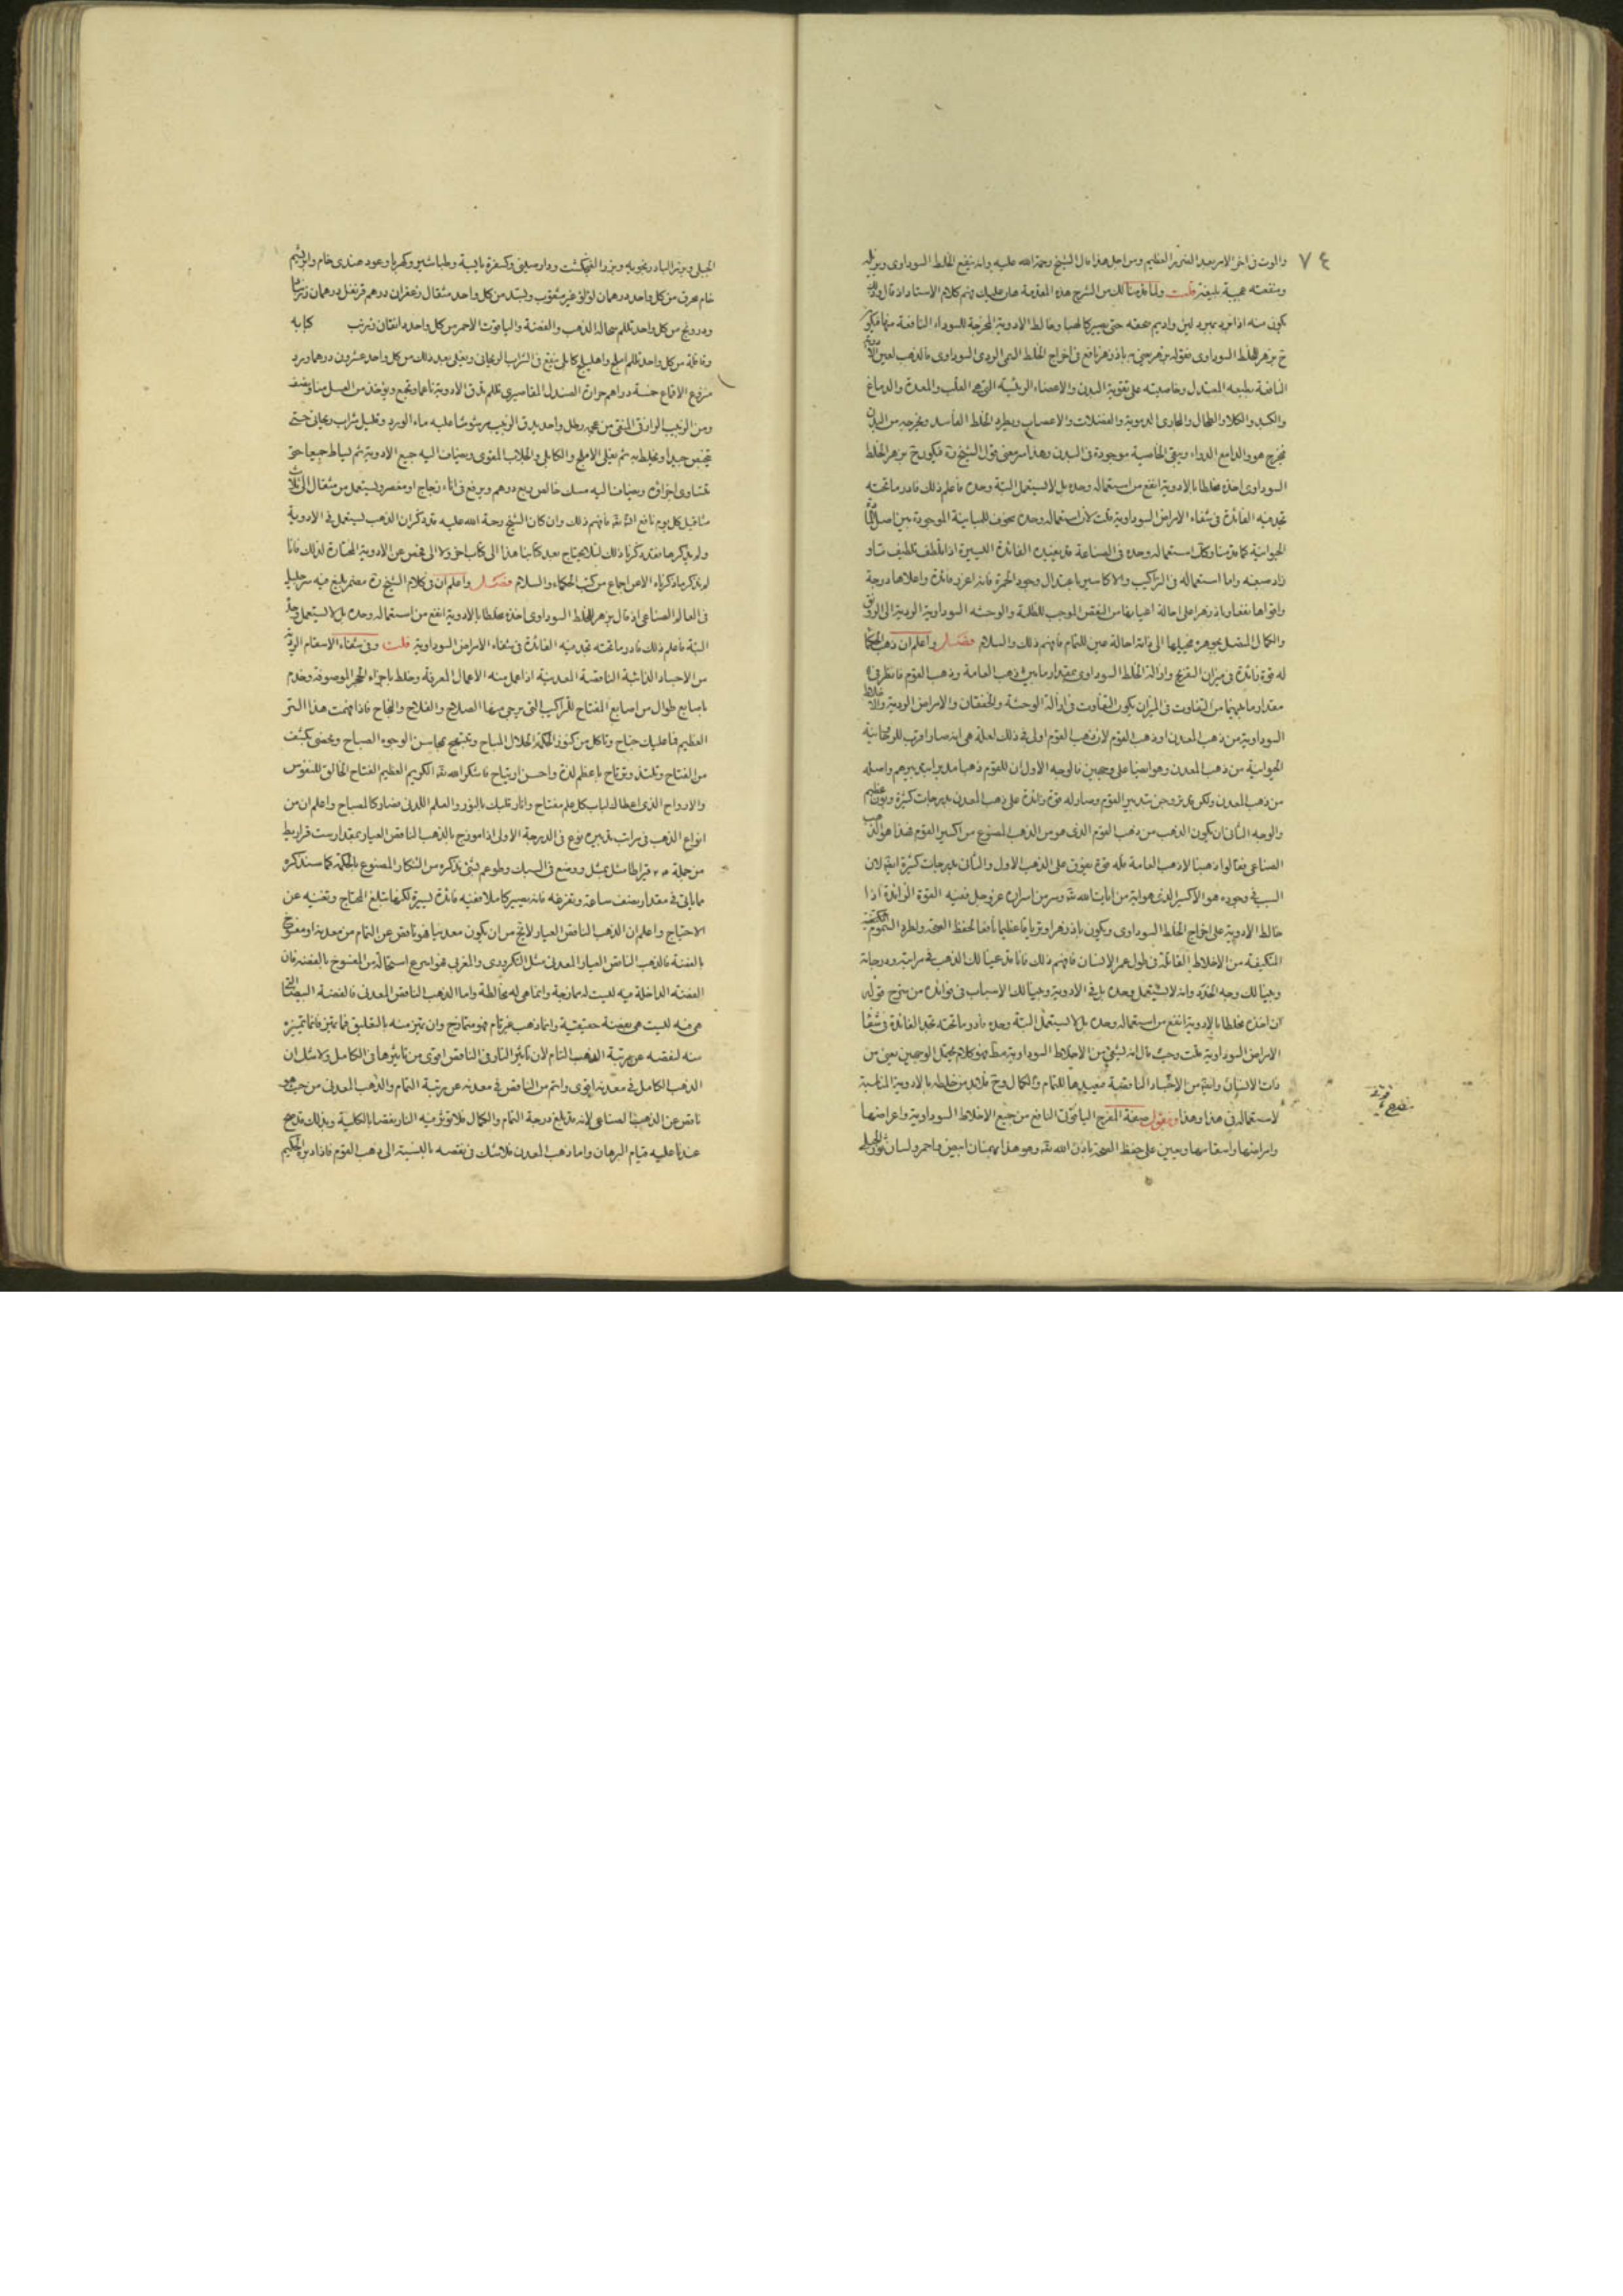 ٧٤
والموت فى اخر الامر بعد الضرر العظيم ومن اجل هذا قال الشيخ رحمة الله عليه وانه ينفع الخلط السوداوى ويزيله
ومنفعته عجيبة بليغة قلت ولما قدمنا لك من الشرح هذه المقدمة هان عليك فهم كلام الاستاد اذ قال وذلك
يكون منه اذا برد بمبرد لين واديم سحقه حتى يصير كالهبا وخالط الادوية المخرجة للسوداء النافعة منها فيكون
ح بزهر للخلط السوداوى فقوله بزهر يعنى به باذزهر نافع فى اخراج الخلط السمى الردى السوداوى فالذهب لعين الادوية
النافعة بطبعه المعتدل وخاصيته على تقوية البدن والاعضاء الرئيسة التى هى القلب والمعدة والدماغ
والكبد والكلا والطحال والمجارى الدموية والعضلات والاعصاب ويطرد الخلط الفاسد ويخرجه من البدن
فيخرج هو والدافع الدواء ويبقى الخاصية موجودة فى البدن وهذا سر معنى قول الشيخ ره فيكون ح بزهر الخلط
السوداوى اخذه مخلطا بالادوية انفع من استعماله وحده بل لا يستعمل البتة وحده فاعلم ذلك فادر ما تحته
تجد فيه الفائدة فى شفاء الامراض السوداوية قلت لان استعماله وحده
الحيوانية كما قدمنا وكك استعماله وحده فى الصناعة قد يفيد الفائدة اليسيرة اذا لطف تلطيف
زاد صبغه واما استعماله فى التراكيب والاكاسير باعتدال وجود الحمرة فانه اعزز فائدة واعلاها درجة
واقواها نفعا وباذزهر اعلى احالة اعيانها من النقص الموجب للظلمة والوحشه السوداوية الردية الى الرونق
والكمال المقبل بجوهره بحيلها الى ذاته احالة عين للتمام فافهم ذلك والسلام فصل واعلم ان ذهب الحكما
له قوة زائدة فى ميزان التفريح وازالة الخلط السوداوى بمقدار ما بين ذهب العامة وذهب القوم فانظر فى
مقدار ما بينهما من التفاوت فى الميزان يكون التفاوت فى ازالة الوحشة والخفقان والامراض الردية والاخلاط
السوداوية من ذهب المعدن اوذهب القوم لان ذهب القوم اولى فى ذلك لعلة هى انه صار اقرب للروحانية
الحيوانية من ذهب المعدن وهو ايضا على وجهين فالوجه الاول ان للقوم ذهبا مدبرا بتدبيرهم واصله
من ذهب المعدن ولكن قد تروحن بتدبير القوم وصار له قوة زائدة على ذهب المعدن بدرجات كثيرة وبون عظيم
والوجه الثانى ان يكون الذهب من ذهب القوم الذى هو من الذهب المصنوع من اكسير القوم فهذا هو الذهب
الصناعى فقالوا ذهبنا لا ذهب العامة فله قوة يفوق على الذهب الاول والثانى بدرجات كثيرة ايضا لان
السبب فى وجوده هو الاكسير الذى هو اية من ايات الله تعه وسر من اسراره عز وجل ففيه القوة الزائدة اذا
خالط الادوية على اخراج الخلط السوداوى ويكون باذزهرا وترياقا عظيما نافعا لحفظ الصحة ولطرد السموم
المتكيفة من الاخلاط القاتلة فى طول عمر الانسان فافهم ذلك فانا قد عينا لك الذهب فى مراتبه ودرجاته
وبينا لك وجه الحذر وانه لا يستعمل وحده بل فى الادوية وبينا لك الاسباب فى فوائده من شرح قوله
ان اخذه مخلطا بالادوية انفع من استعماله وحده بل لا يستعمل البتة وحده فادر ما تحته تجد الفائدة فى شفا
الامراض السوداوية قلت وحيث قال انه يشفى من الاخلاط السوداوية مطلقا فهو كلام يحتمل الوجهين يعنى من
ذات الانسان وايضا من الاجساد الناقصة فيعيدها للتمام والكمال وح فلابد من خلطه بالادوية المناسبة
لاستعماله فى هذا وهذا ونقول صفة المفرح الياقوتى النافع من جميع الاخلاط السوداوية واعراضها
وامراضها واسقامها ويعين على حفظ الصحة باذن الله تعه وهو هذا بهمنان ابيض واحمر ولسان ثور
الجبلى وبزر البادرنجويه وبزر الفنجنكشت ودارصينى وكسفرة يابسة وطباشير وكهربا وعود هندى خام وابريسم
خام محرق من كل واحد درهمان لؤلؤ غير مثقوب وبسد من كل واحد مثقال زعفران درهم قرنفل درهمان
ودرونج من كل واحد سحالة الذهب والفضة والياقوت الاحمر من كل واحد دانقان كبابه
وقاقلة من كل واحد املج واهليلج كابلى ينقع فى الشراب الريحانى ويغلى بعد ذلك من كل واحد عشرون درهما ورد
منزوع الاقماع خمسة دراهم الصندل المقاصيرى تدق الادوية ناعما وتجمع ويؤخذ من العسل منا ونصف
ومن الزبيب الرازقى المنقى من عجمه رطل واحد يدق الزبيب مرشوشا عليه ماء الورد وقليل شراب ريحانى حتى
جيدا ويخلط به ثم يغلى الاملج والكابلى والجلاب المقوى ويضاف اليه جميع الادوية ثم يساط جميعا حتى
تتساوى اجزاؤه ويضاف اليه مسك خالص ربع درهم ويرفع فى اناء زجاج او مغضر ويستعمل من مثقال الى ثلاث
مثاقيل كل يوم نافع انشاء الله تعه فافهم ذلك وان كان الشيخ رحمة الله عليه قد ذكر ان الذهب يستعمل فى الادوية
ولم يذكرها فقد ذكرنا ذلك لئلا يحتاج بعد كتابنا هذا الى كتاب اخر ولا الى فحص عن الادوية المختارة لذلك فانا
لم نذكر ما ذكرناه الا عن اجماع من كتب الحكماء والسلام فصل واعلم ان فى كلام الشيخ ره مضمر بليغ فيه سر جليل
فى العالم الصناعى اذ قال بزهر للخلط السوداوى اخذه مخلطا بالادوية انفع من استعماله وحده بل لا يستعمل وحده
البتة فاعلم ذلك فادر ما تحته تجد فيه الفائدة فى شفاء الامراض السوداوية قلت وفى شفاء الاسقام الردية
من الاجساد الذائبة الناقصة المعدنية اذا عمل منه الاعمال المعرفة وخلط باجزاء الحجر الموصوفة وخدم
باصابع طوال من اصابع المفتاح للتراكيب التى يرجى منها الصلاح والفلاح والنجاح فاذا فهمت هذا السر
العظيم فما عليك جناح وتاكل من كنوز الحكمة الحلال المباح وتبتهج بمحاسن الوجوه الصباح وتحضى بكشف
من الفتاح وتلتذ وترتاح باعظم لذة واحسن ارتياح فاشكر الله تعه الكريم العظيم الفتاح الخالق للنفوس
والارواح الذى اعطاك لباب كل علم مفتاح وانار قلبك بالنور والعلم اللدنى فضاء كالمصباح واعلم ان من
انواع الذهب فى مراتب تدبيره نوع فى الدرجة الاولى اذا موزج بالذهب الناقص العيار بمقدار ست قراريط
من جملة قيراطا مثل بمثل ووضع فى السبك وطوعم بشئ نذكره من التنكار المصنوع بالحكمة كما سنذكره
فيما ياتى فى مقدار نصف ساعة وتفرغه فانه يصير كاملا ففيه فائدة يسيرة لكنها تبلغ المحتاج وتغنيه عن
الاحتياج واعلم ان الذهب الناقص العيار لا يخ من ان يكون معدنيا فهو ناقص عن التمام من معدنه او مغشوش
بالفضة فالذهب الناقص العيار المعدنى مثل التكرورى والمغربى فهو اسرع استحالة من المغشوش بالفضة فان
الفضة الداخلة فيه ليست له ممازجة وانما هى له مخالطة واما الذهب الناقص المعدنى فالفضة البيضا التى
هى فيه ليست هى بفضة حقيقية وانما ذهب غير تام فهو متمازج وان تميز منه بالتعليق فما تميز فانما تميزه
منه لنقصه عن مرتبة الذهب التام لان تاثير النار فى الناقص اقوى من تاثيرها فى الكامل ولا شك ان
الذهب الكامل فى معدنه اقوى واتم من الناقص فى معدنه عن مرتبة التمام والذهب المعدنى من حيث هو
ناقص عن الذهب الصناعى لانه قد بلغ درجة التمام والكمال فلا تؤثر فيه النار نقصا بالكلية وبذلك قد صح
عندنا عليه قيام البرهان واما ذهب المعدن فلا شك فى نقصه بالنسبة الى ذهب القوم فاذا دبره الحكيم